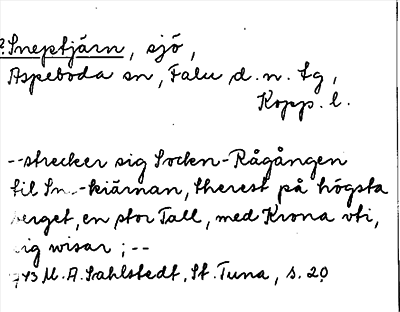 ?.Sneptjärn, sjö,
Aspeboda sn, Falu d.n. tg,
Kopp. l.
--strecker sig Socken-Rågången
til Sn..-kiärnan, therest på högsta
berget, en stor Tall, med Krona uti,
sig wisar; --
1743 M. A. Sahlstedt, St. Tuna, s. 20